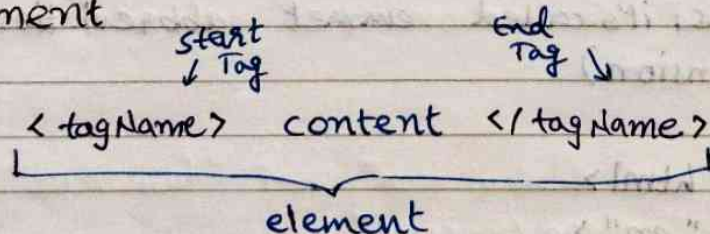 ment
start End
Tag Tag
<tagName> content </tagName>
element